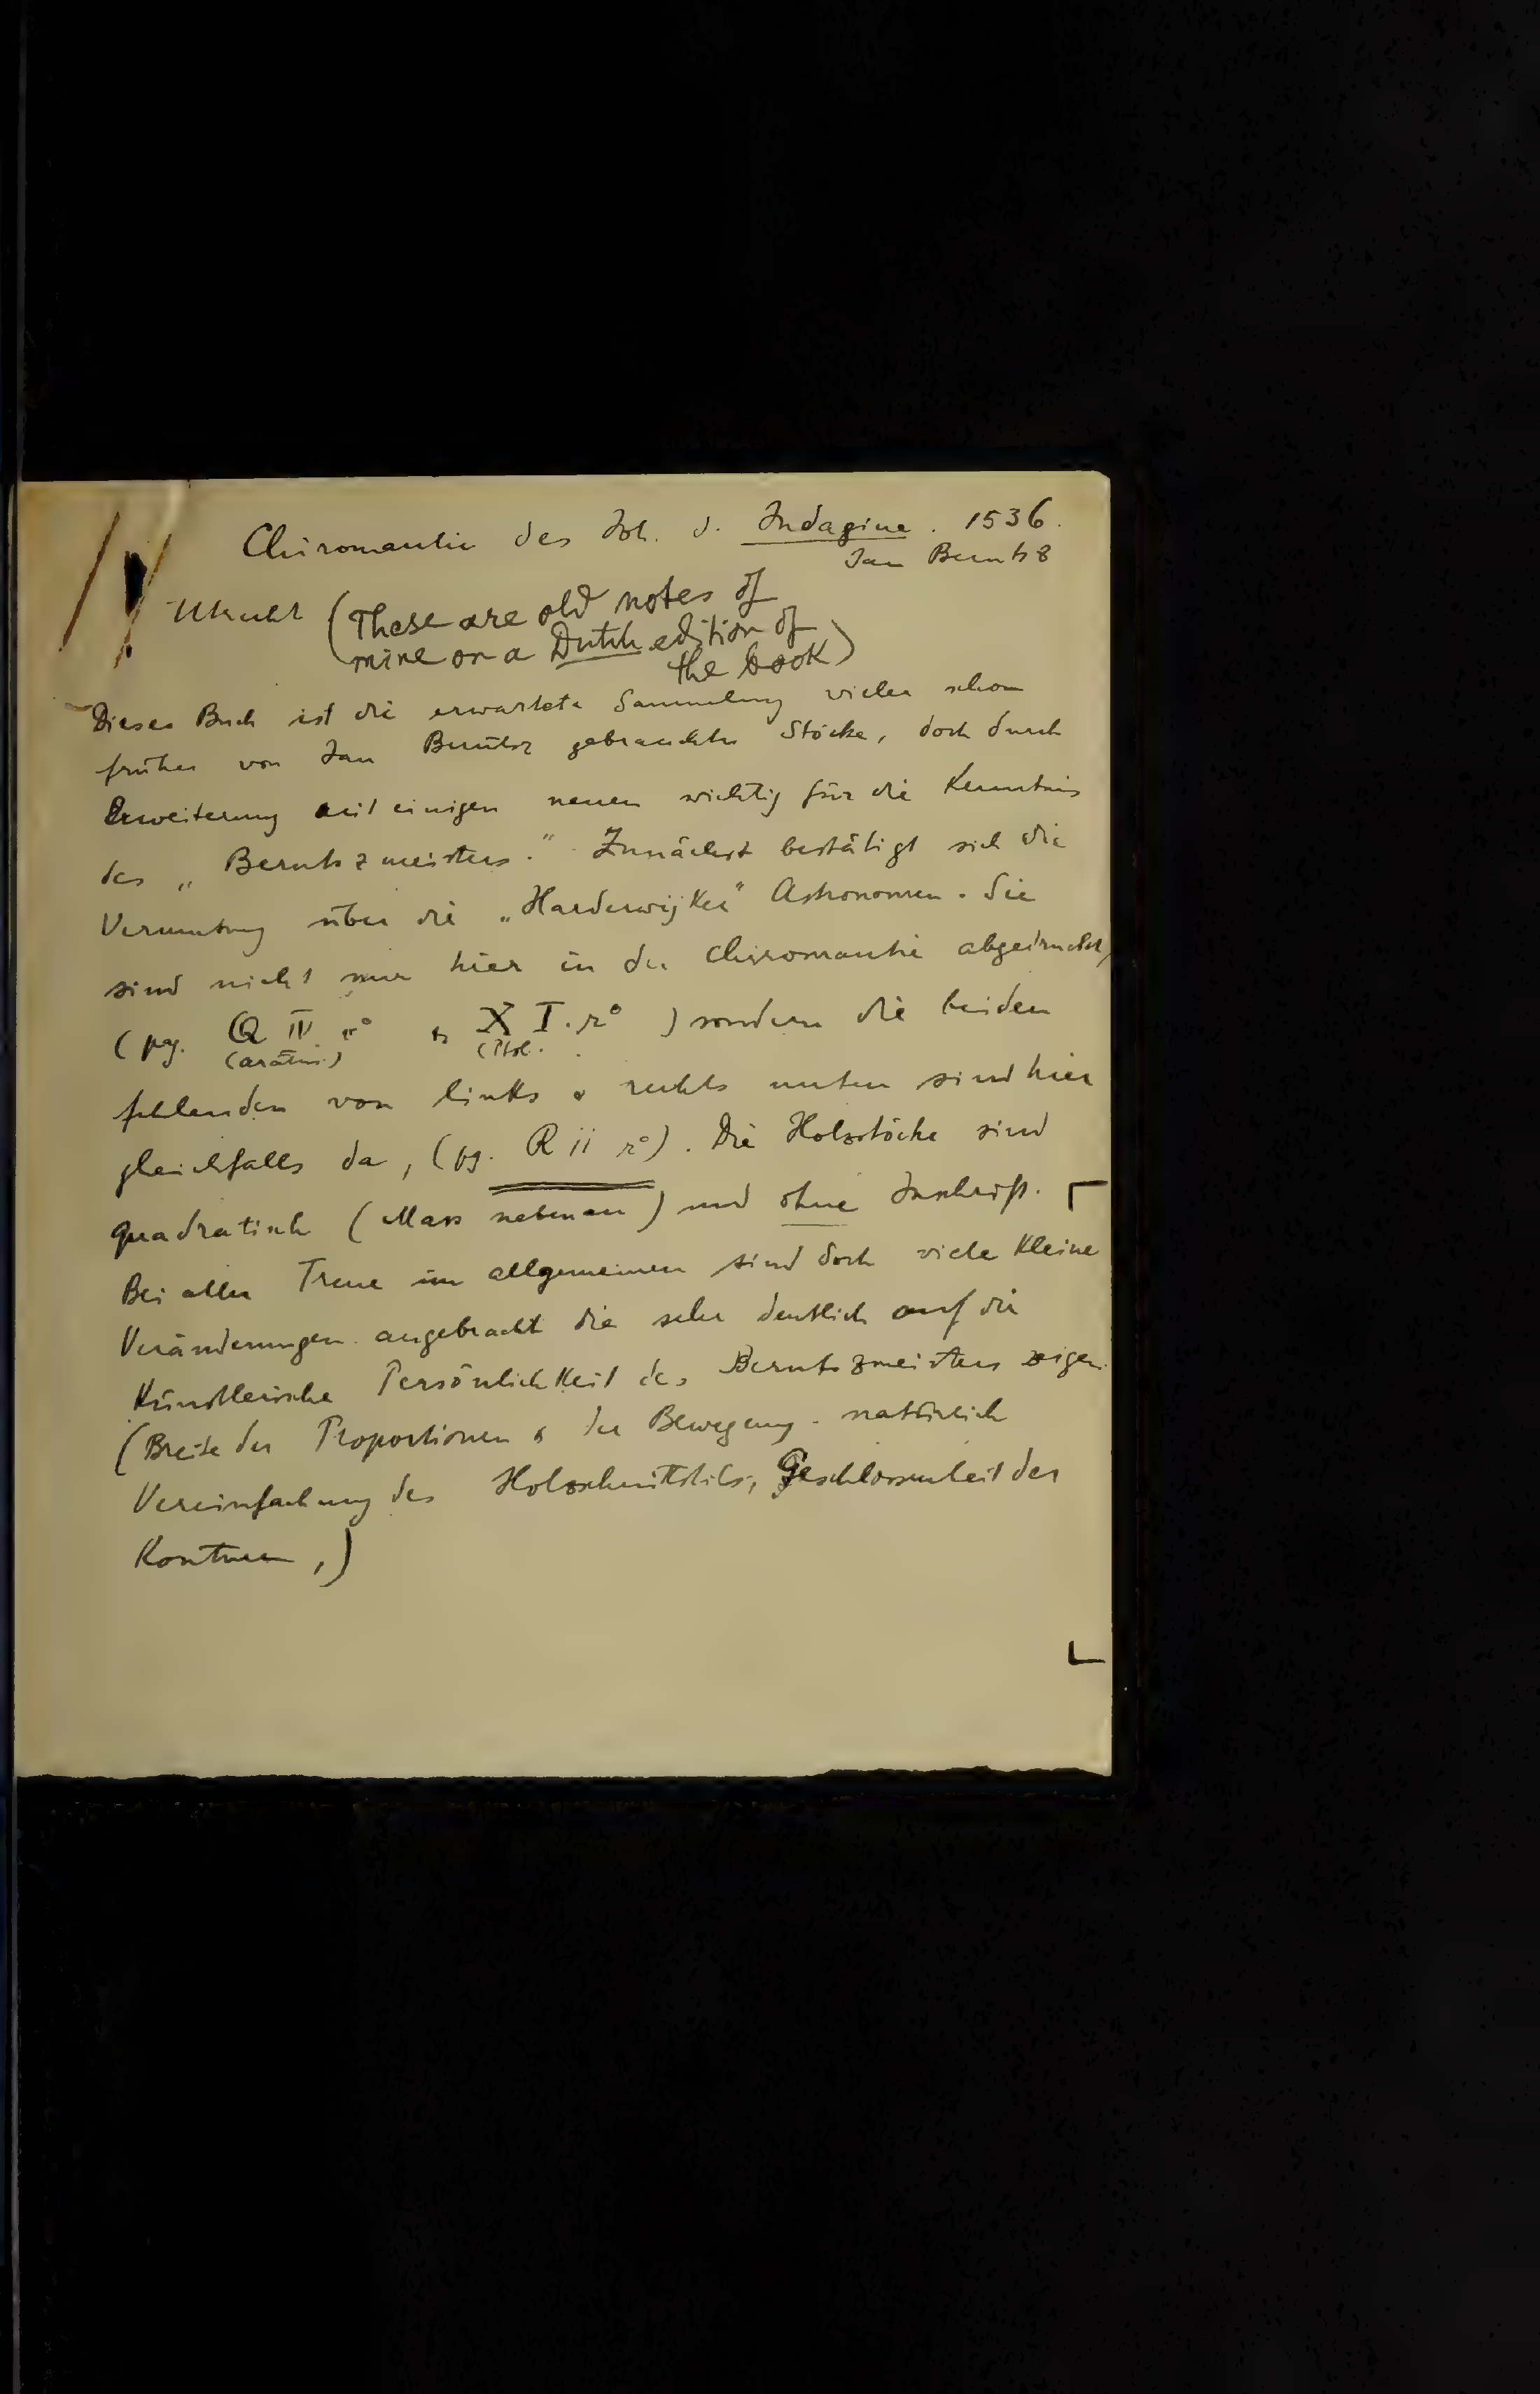 Chiromantie des Joh. d. Indagine. 1536.
Jan Berntsz
Utrecht (These are old notes of
mine on a Dutch edition of
the book)
Dieses Buch ist die erwartete Sammlung vieler schon
früher von Jan Berntsz gebrauchter Stöcke, doch durch
Erweiterung mit einigen neuen wichtig für die Kenntnis
des „Berntszmeisters." Zunächst bestätigt sich die
Vermutung über die „Harderwijker" Astronomen. Sie
sind nicht nur hier in der Chiromantie abgedruckt,
(pg. Q IV r° u. X I. r° ) sondern die beiden
(Ptol.
fehlenden von links u rechts unten sind hier
gleichfalls da, (pg. R ii r°). Die Holzstöcke sind
quadratisch (Mass nebenan) und ohne Inschrift.
Bei aller Treue im allgemeinen sind doch viele kleine
Veränderungen angebracht die sehr deutlich auf die
künstlerische Persönlichkeit des Berntszmeisters zeigen.
(Breite der Proportionen u der Bewegung. natürlich
Vereinfachung des Holzschnittstils, Geschlossenheit der
Konturen,)